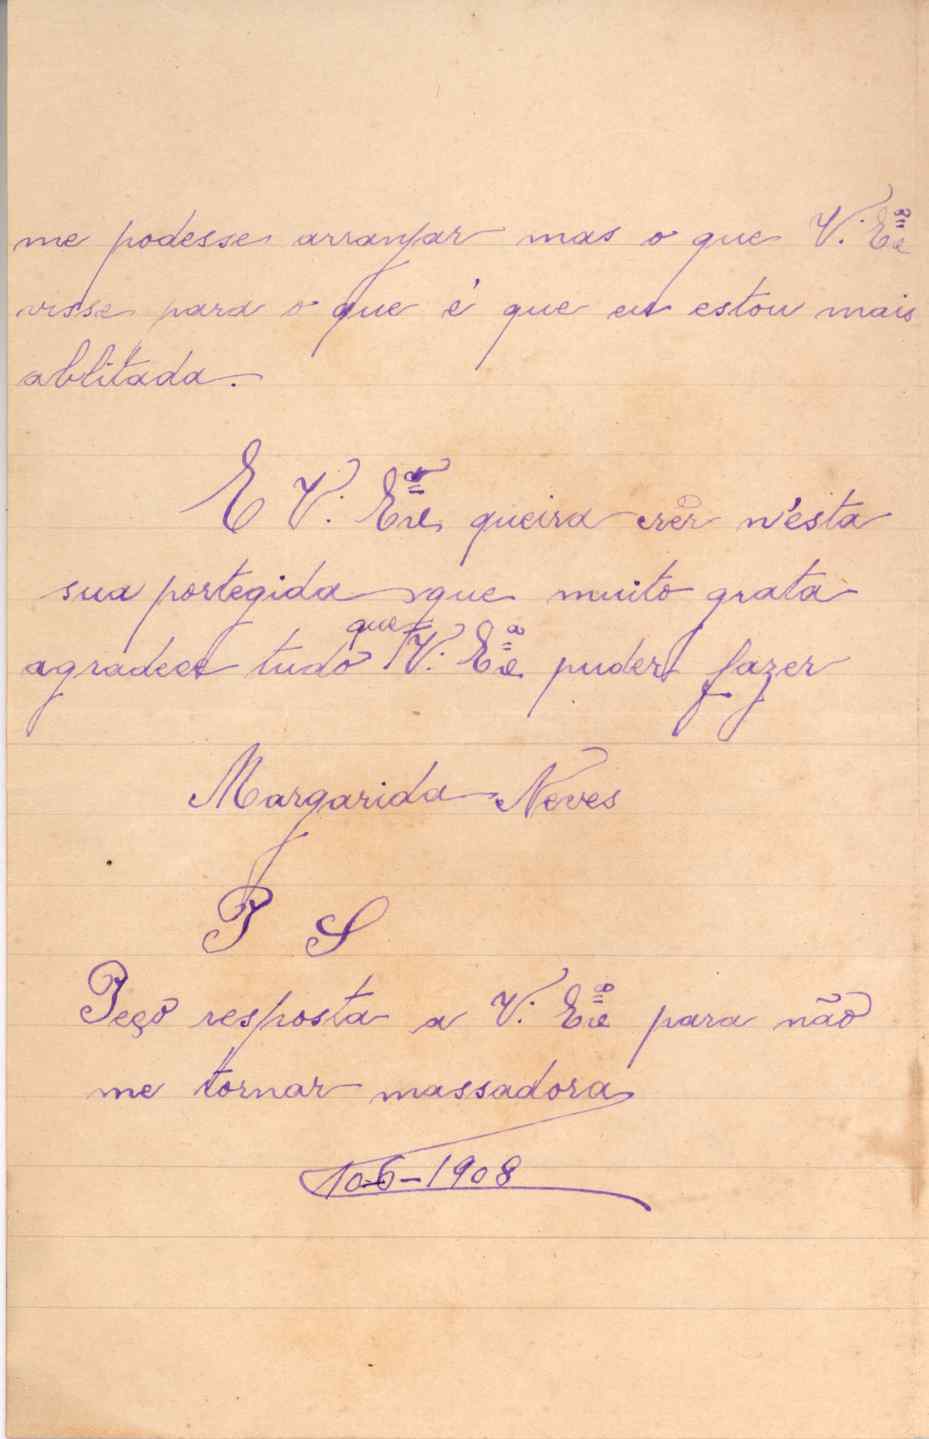 me podesse arranjar mas o que V. Exª
visse para o que é que eu estou mais
ablitada.
E V. Exª queira crêr n'esta
sua portegida que muito grata
agradece tudo que V. Exª puder fazer
Margarida Neves
P S
Peço resposta a V. Exª para não
me tornar massadora
10-6-1908